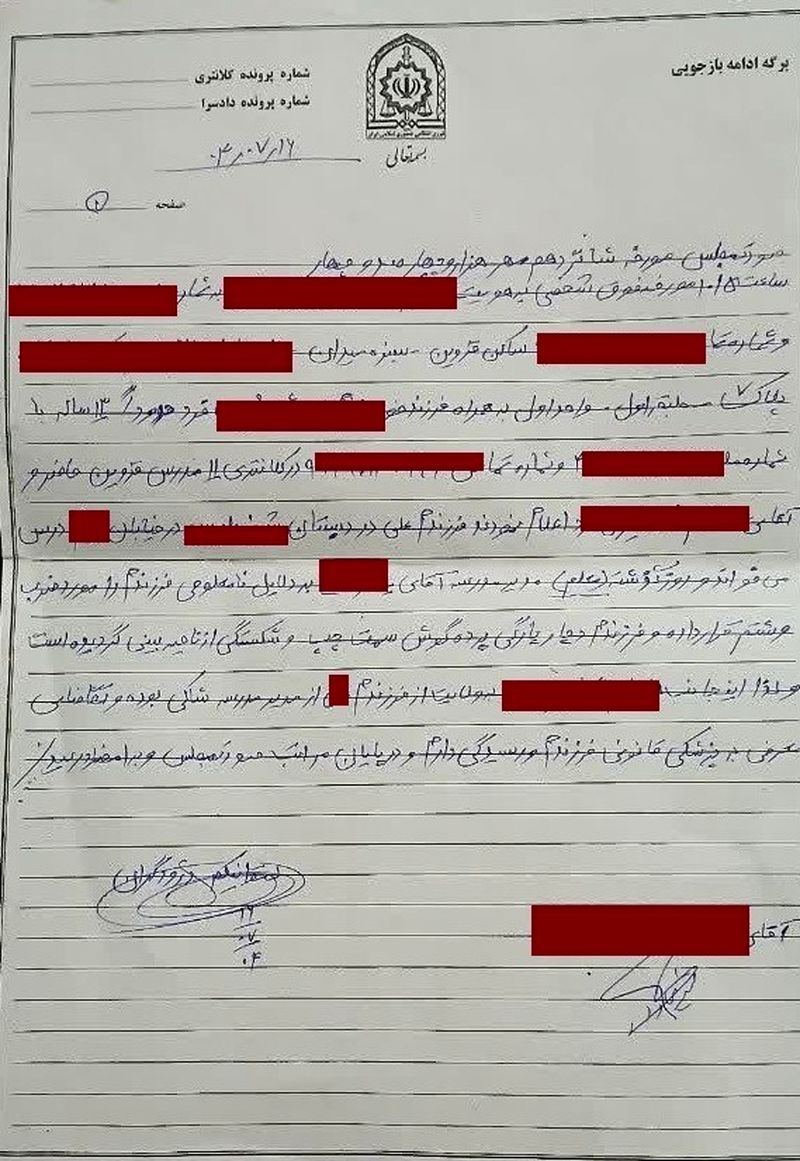 برگه ادامه بازجویی
شماره پرونده کلانتری
شماره پرونده دادسرا
نیروی انتظامی جمهوری اسلامی ایران
بسمه‌تعالی
۰۴/۰۷/۱۶
صفحه ۱
صورتمجلس مورخه شانزدهم مهر هزار و چهارصد و چهار
ساعت ۱۰/۱۵ مورخه فوق شخصی به هویت به شماره
و شماره تماس ساکن قزوین - سبزه میدان
پلاک ۷ طبقه اول - واحد اول به همراه فرزند ۱۳ ساله با
شماره ملی و شماره تماس در کلانتری ۱۱ مدرس قزوین حاضر و
آقای اعلام نمودند فرزندم علی در دبستان در خیابان درس
می خواند و روز گذشته (معلم) مدیر مدرسه آقای به دلایل نامعلومی فرزندم را مورد ضرب
و شتم قرار داده و فرزندم دچار پارگی پرده گوش سمت چپ و شکستگی از ناحیه بینی گردیده است
و لذا اینجانب به ولایت از فرزندم از مدیر مدرسه شاکی بوده و تقاضای
معرفی به پزشکی قانونی فرزندم و رسیدگی دارم و در پایان مراتب صورتمجلس و به امضا رسید
۱۶
۰۷
۰۴
آقای